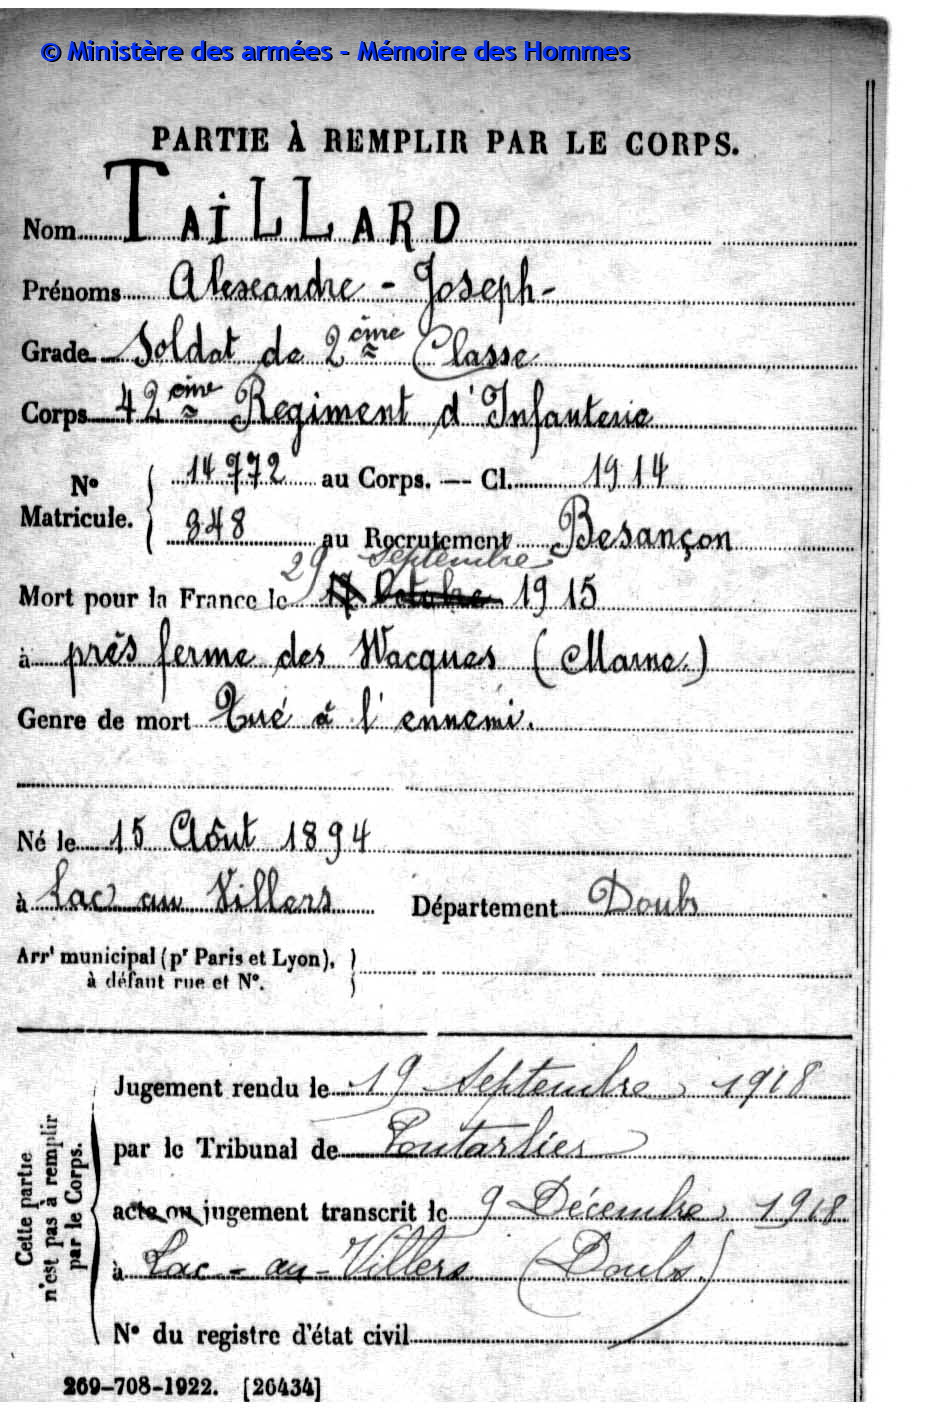 © Ministère des armées - Mémoire des Hommes
PARTIE À REMPLIR PAR LE CORPS.
Nom TAiLLARD
Prénoms Alexandre - Joseph -
Grade Soldat de 2ème Classe
Corps 42ème Régiment d'Infanterie
N° Matricule. 14772 au Corps. — Cl. 1914
848 au Recrutement Besançon
29 Septembre
Mort pour la France le 17 Octobre 1915
à près ferme des Wacques (Marne)
Genre de mort Tué à l'ennemi.
Né le 15 Août 1894
à Lac au Villers Département Doubs
Arrt municipal (pr Paris et Lyon),
à défaut rue et N°.
Cette partie n'est pas à remplir par le Corps.
Jugement rendu le 19 Septembre 1918
par le Tribunal de Pontarlier
acte ou jugement transcrit le 9 Décembre 1918
à Lac-au-Villers (Doubs)
N° du registre d'état civil
269-708-1922. [26434]